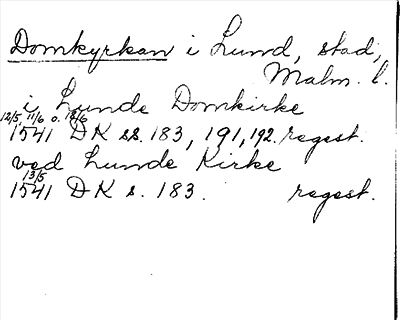 Domkyrkan i Lund, stad,
Malm. l.
i Lunde Domkirke
12/5, 11/6 o. 13/6
1541 DK ss. 183, 191, 192. regest.
ved Lunde Kirke
13/5
1541 DK s. 183. regest.